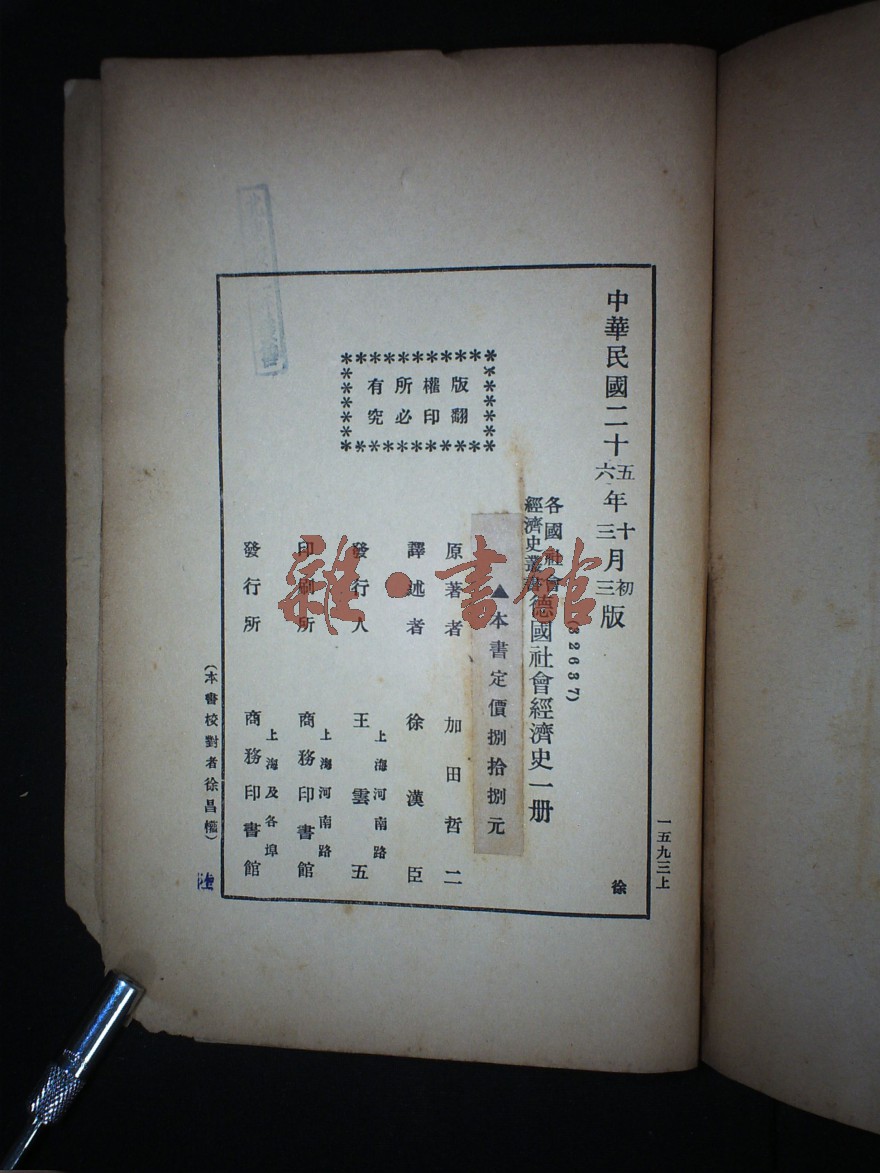 中華民國二十五年十月初版
六 三 三
各國社會
經濟史叢書
德國社會經濟史一册
(32637)
▲本書定價捌拾捌元
版權所有
翻印必究
原著者 加田哲二
譯述者 徐漢臣
發行人 王雲五
上海河南路
印刷所 商務印書館
上海河南路
發行所 商務印書館
上海及各埠
(本書校對者徐昌權)
一五九三上
徐
雜·書館